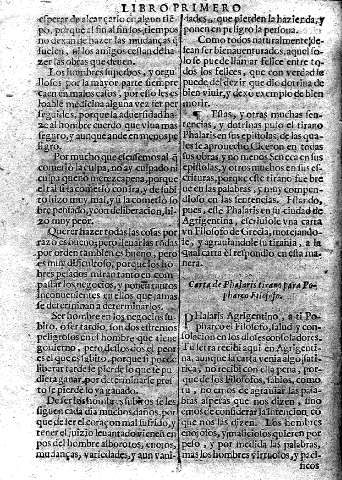 LIBRO PRIMERO
esperar de alcançarlo en algun tiẽ
po, porque al fin al fin los tiempos
no dexan de hazer las mudanças q̃
suelen, si los amigos no dexan de ha
zer las obras que deuen.
Los hombres superbos, y orgu
llosos por la mayor parte siempre
caen en malos casos, por esso les es
loable medicina alguna vez ser per
seguidos, porque la aduersidad ha
ze al hombre cuerdo que viua mas
seguro, y aun que ande en menos pe
ligro.
Por mucho que escusemos al q̃
cometio la culpa, no ay culpa ni cul
culpado que no merezca pena, porque
el tal si la cometio con yra, y de subi
to hizo muy mal, y si la cometio so
bre pensado, y con deliberacion, hi
zo muy peor.
Querer hazer todas las cosas por
razon es bueno, pero lleuarlas todas
por orden tambien es bueno, pero
es muy dificultoso, porque los hom
bres pesados miran tanto en com
passar los negocios, y ponen tantos
inconuenientes en ellos que jamas
se determinan a determinarlos.
Ser hombre en los negocios su
bito, o ser tardio, son dos estremos
peligrosos en el hombre que tiene
gouierno, pero de los dos el peor
es el que es subito, porque si por de
liberar tarde se pierde lo que se pu
diera ganar, por determinarse presto
se pierde lo ya ganado.
De ser los hombres subitos se les
siguen cada dia muchos daños, por
que de ser el coraçon mal sufrido, y
tener el juizio leuantado vienen em
pos del hombre alborotos, enojos,
mudanças, variedades, y aun vani-
dades, que pierden la hazienda, y
ponen en peligro la persona.
Como todos naturalmente de
sean ser bienauenturados, aquel so
lo se puede llamar felice entre to
dos los felices, que con verdad se
puede del dezir que dio dotrina de
bien viuir, y dexo exemplo de bien
morir.
¶ Estas, y otras muchas senten
cias, y dotrinas puso el tirano
Phalaris en sus epistolas, de las qua
les se aprouecho Ciceron en todas
sus obras, y no menos Seneca en sus
epistolas, y otros muchos en sus es
crituras, porque este tirano fue bre
ue en las palabras, y muy compen
dioso en las sentencias. Estando,
pues, este Phalaris en su ciudad de
Agrigentina, escriuiole vna carta
vn Filosofo de Grecia, motejando
le, y agrauandole su tirania, a la
qual carta el respondio en esta ma
nera.
Carta de Phalaris tirano para Po-
pharco Filosofo.
PHalaris Agrigentino, a ti Po
pharco el Filosofo, salud y con
solacion en los dioses consoladores.
Tu letra recibi aqui en Agrigenti
na, aunque la carta venia algo sati
rica, no recibi con ella pena, por
que de los Filosofos, sabios, como
tu, no emos de agrauiar las pala
bras asperas que nos dizen, sino
emos de considerar la intencion cõ
que nos las dizen. Los hombres
enojosos, y maliciosos quieren por
peso, y por medida las palabras,
mas los hombres virtuosos, y paci-
ficos